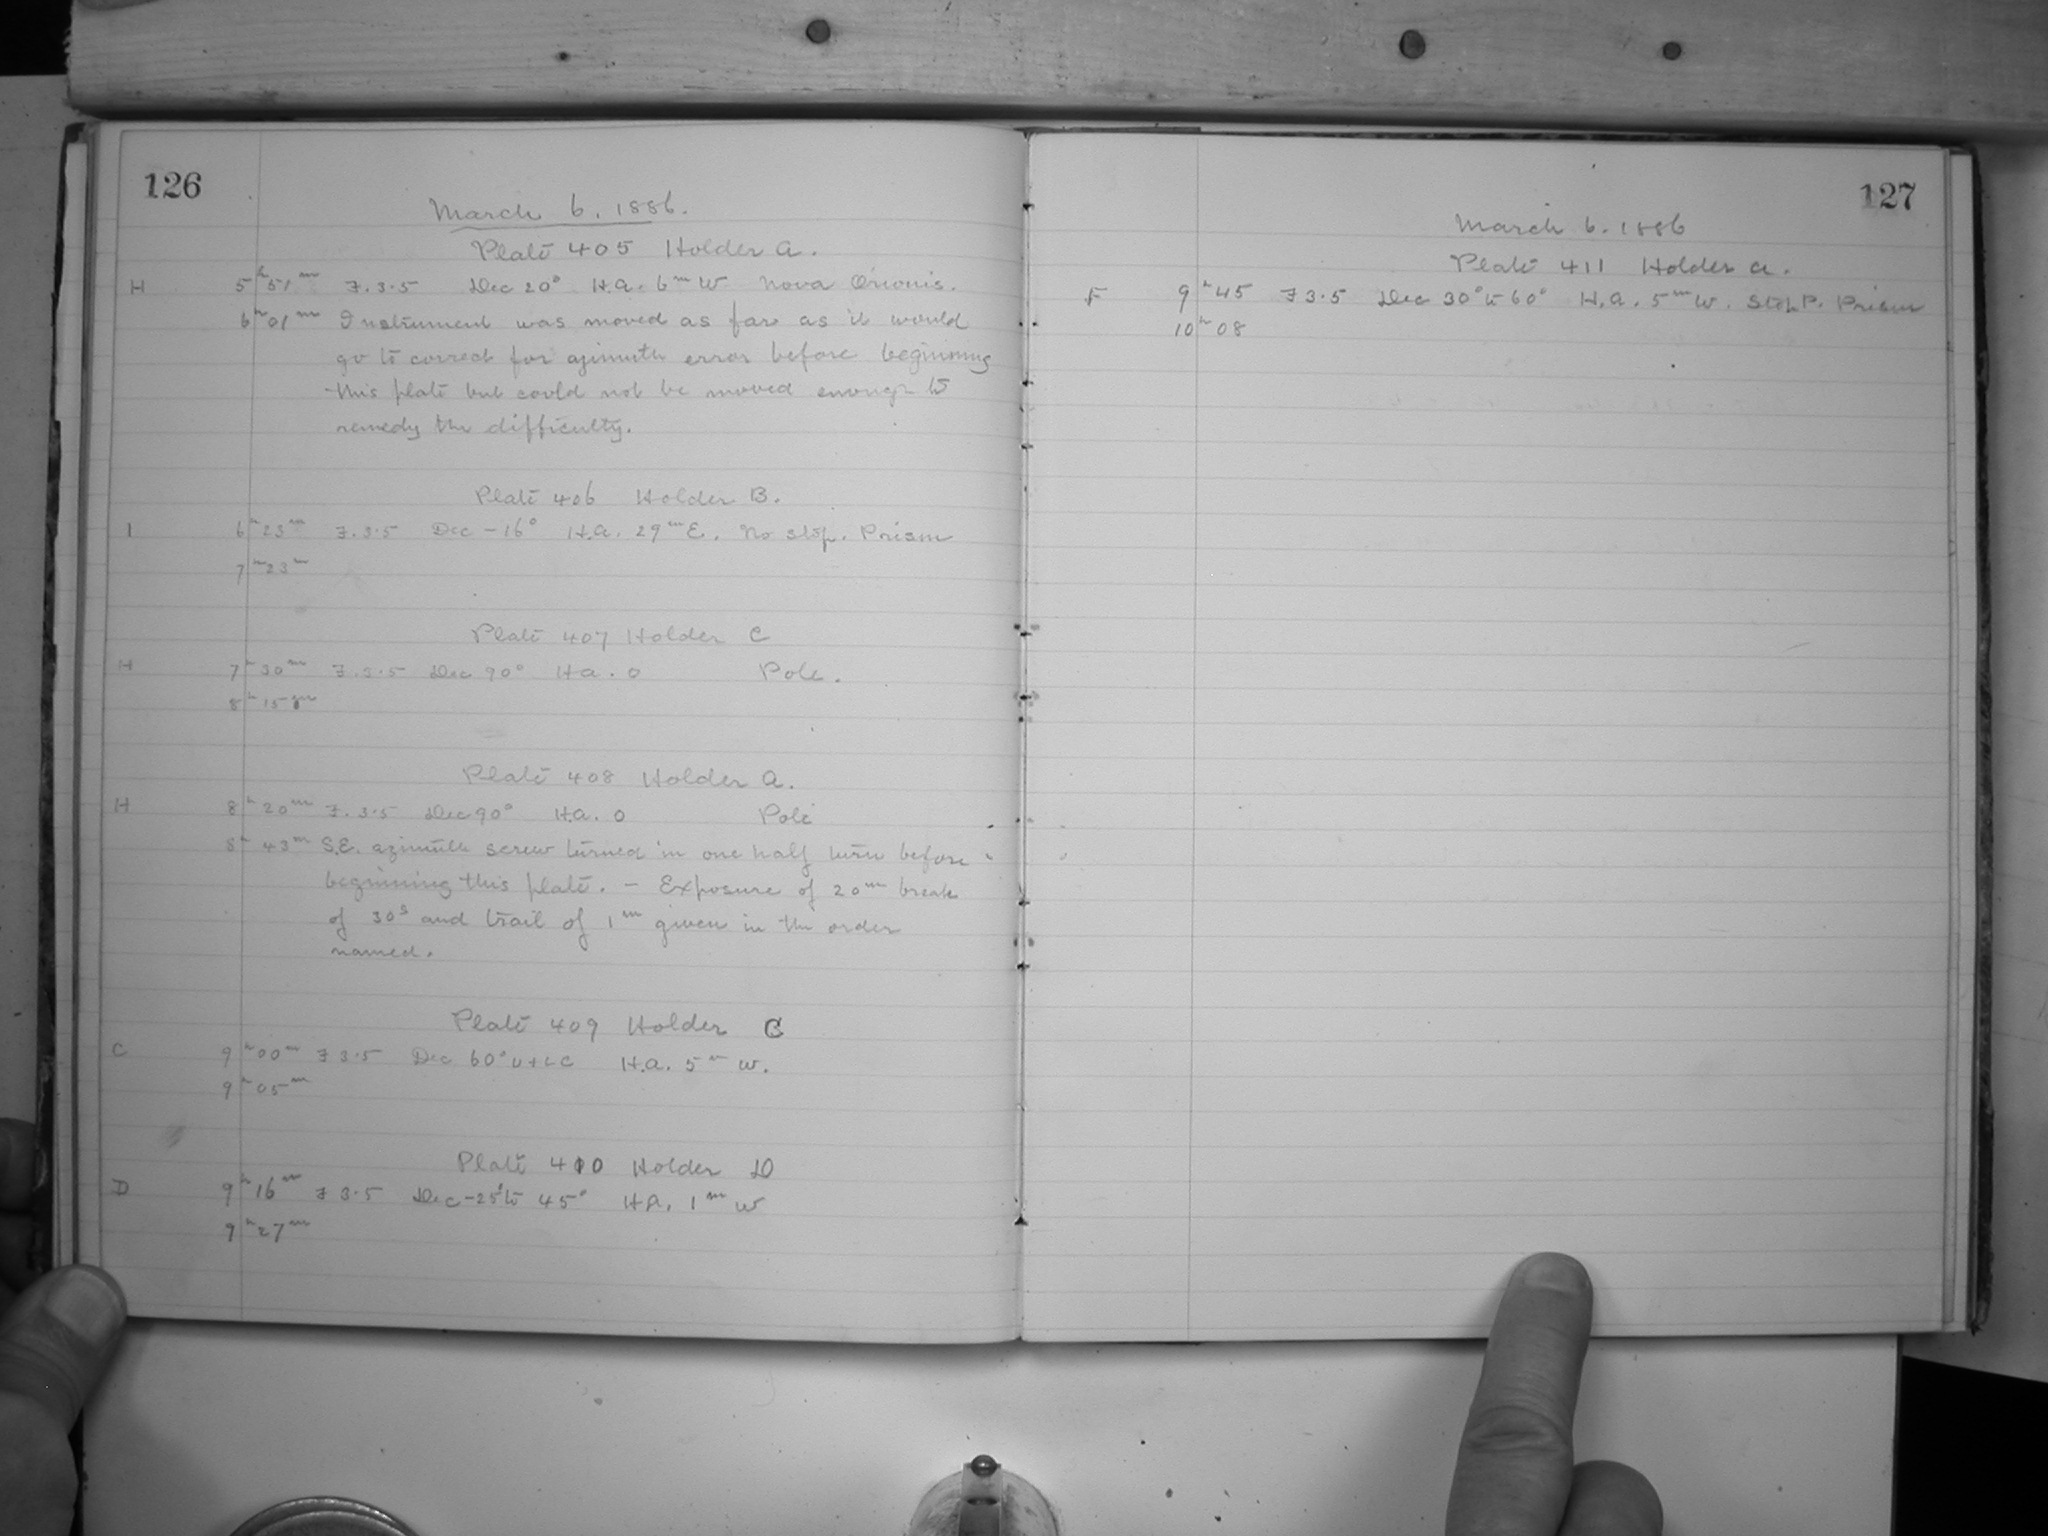 126
March 6. 1886.
Plate 405 Holder A.
H 5h 51m F. 3.5 Dec 20° H.A. 6m W Nova Orionis.
6h 01m Instrument was moved as far as it would
go to correct for azimuth error before beginning
this plate but could not be moved enough to
remedy the difficulty.
Plate 406 Holder B.
I 6h 23m F. 3.5 Dec -16° H.A. 29m E. No stop. Prism
7h 23m
Plate 407 Holder C
H 7h 30m F. 3.5 Dec 90° H.A. 0 Pole.
8h 15m
Plate 408 Holder A.
H 8h 20m F. 3.5 Dec 90° H.A. 0 Pole
8h 43m S.E. azimuth screw turned in one half turn before
beginning this plate. - Exposure of 20m break
of 30s and trail of 1m given in the order
named.
Plate 409 Holder C
C 9h 00m F 3.5 Dec 60° U+LC H.A. 5m W.
9h 05m
Plate 410 Holder D
D 9h 16m F 3.5 Dec -25° to 45° H.A. 1m W
9h 27m
127
March 6. 1886
Plate 411 Holder A.
F 9h 45 F 3.5 Dec 30° to 60° H.A. 5m W. Stop P. Prism
10h 08